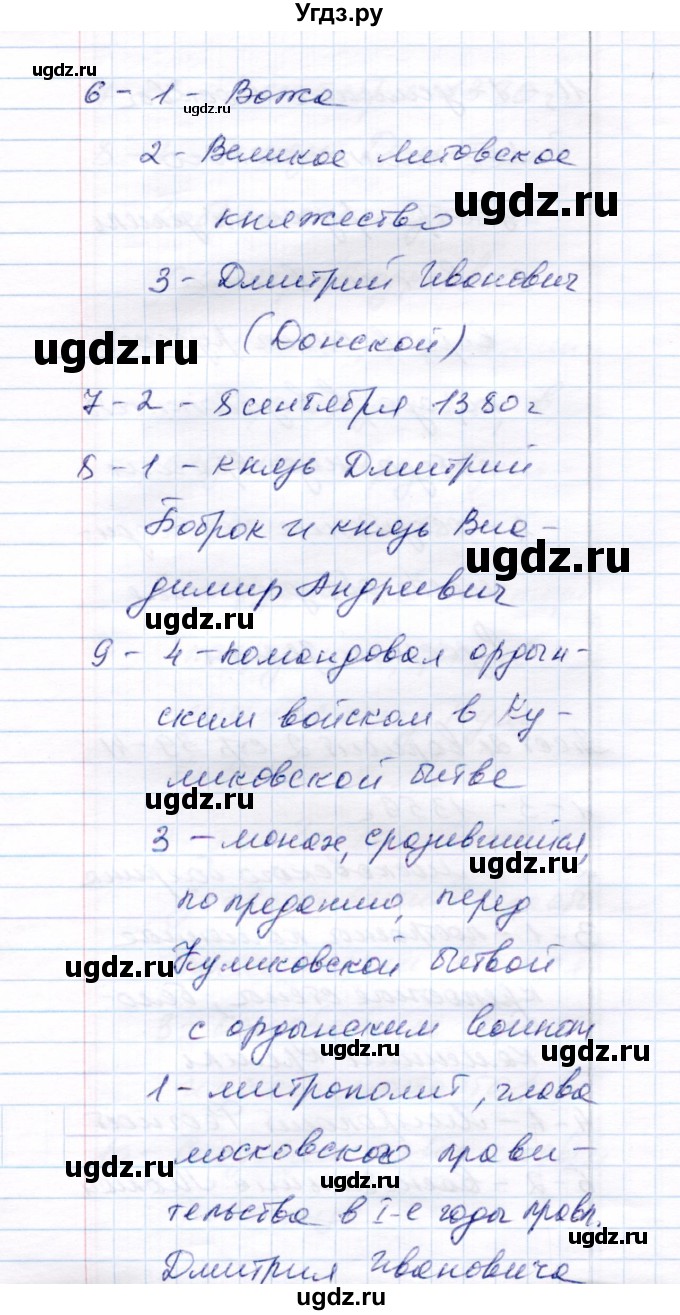 Угдз.ру
ugdz.ru
6 - 1 - Вожа
ugdz.ru
2 - Великое Литовское
ugdz.ru
княжество
3 - Дмитрий Иванович
ugdz.ru
(Донской)
7 - 2 - 8 сентября 1380 г
8 - 1 - князь Дмитрий
Боброк и князь Вла-
ugdz.ru
димир Андреевич
ugdz.ru
9 - 4 - командовал ордын-
ским войском в Ку-
ликовской битве
ugdz.ru
3 - монах, сразившийся,
ugdz.ru
по преданию, перед
Куликовской битвой
ugdz.ru
с ордынским воином
ugdz.ru
ugdz.ru
1 - митрополит, глава
московского прави-
ugdz.ru
ugdz.ru
тельства в I-е годы правл.
Дмитрия Ивановича
ugdz.ru
ugdz.ru